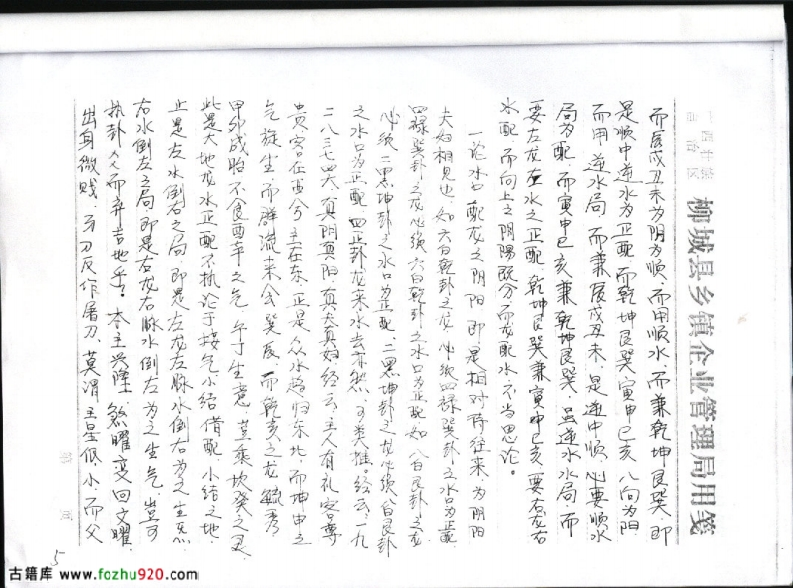 广西壮族自治区
柳城县乡镇企业管理局用笺
而辰戌丑未为阴为顺，而用顺水，而兼乾坤艮巽，即
是顺中逆水为正配，而乾坤艮巽寅申巳亥八向为阳
而用逆水局，而兼辰戌丑未，是逆中顺，必要顺水
局为配，而寅申巳亥兼乾坤艮巽，虽逆水局，而
要左龙左水之正配，乾坤艮巽兼寅申巳亥要右龙右
水配，而向上之阴阳既分而龙配水不当思论。
一论水口配龙之阴阳，即是相对待往来，为阴阳
夫妇相见也，如六白乾卦之龙，必须四禄巽卦之水为正配
四禄巽卦之龙必须六白乾卦之水口为正配，如八白艮卦之龙
必须二黑坤卦之水口为正配，二黑坤卦之龙必须八白艮卦
之水口为正配，四正卦龙来水去亦然，可类推。经云，一九
二八三七四六真阴真阳，有真夫真妇，经云，主人有礼客尊
贵，客在西兮主在东，正是众水趋归东北，而坤申之
气旋生，而群流来会巽辰，而乾亥之龙毓秀
甲卯成胎，不食酉辛之气，午丁生意，莫乘坎癸之灵，
此是大地龙水正配，不执论于接气小结借配，小结之地，
止是左水倒右之局，即是左龙左脉水倒右为之生气，
右水倒左之局，即是右龙右脉水倒左为之生气，岂可
执卦爻而弃吉地乎。本主兴隆，煞曜变回文曜
出身微贱，弓刀反作屠刀，莫谓主星低小而父
第 页
5
古籍库 www.fozhu920.com